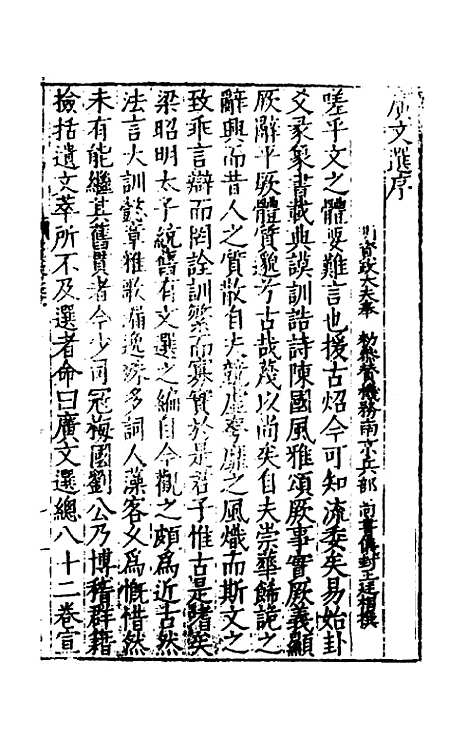 廣文選序
資政大夫奉 勅叅贊機務南京兵部尚書儀封王廷相撰
嗟乎文之體要難言也援古炤今可知流委矣易始卦
爻彖象書載典謨訓誥詩陳國風雅頌厥事實厥義顯
厥辭平厥體質邈乎古哉蔑以尚矣自夫崇華餙詭之
辭興而昔人之質散自夫競虛夸靡之風熾而斯文之
致乖言辯而罔詮訓繁而寡實於是君子惟古是睹矣
梁昭明太子統舊有文選之編自今觀之頗為近古然
法言大訓懿章雅歌漏逸殊多詞人藻客久為慨惜然
未有能繼其舊貫者今少司冦梅國劉公乃博稽群籍
撿括遺文萃所不及選者命曰廣文選總八十二卷宣